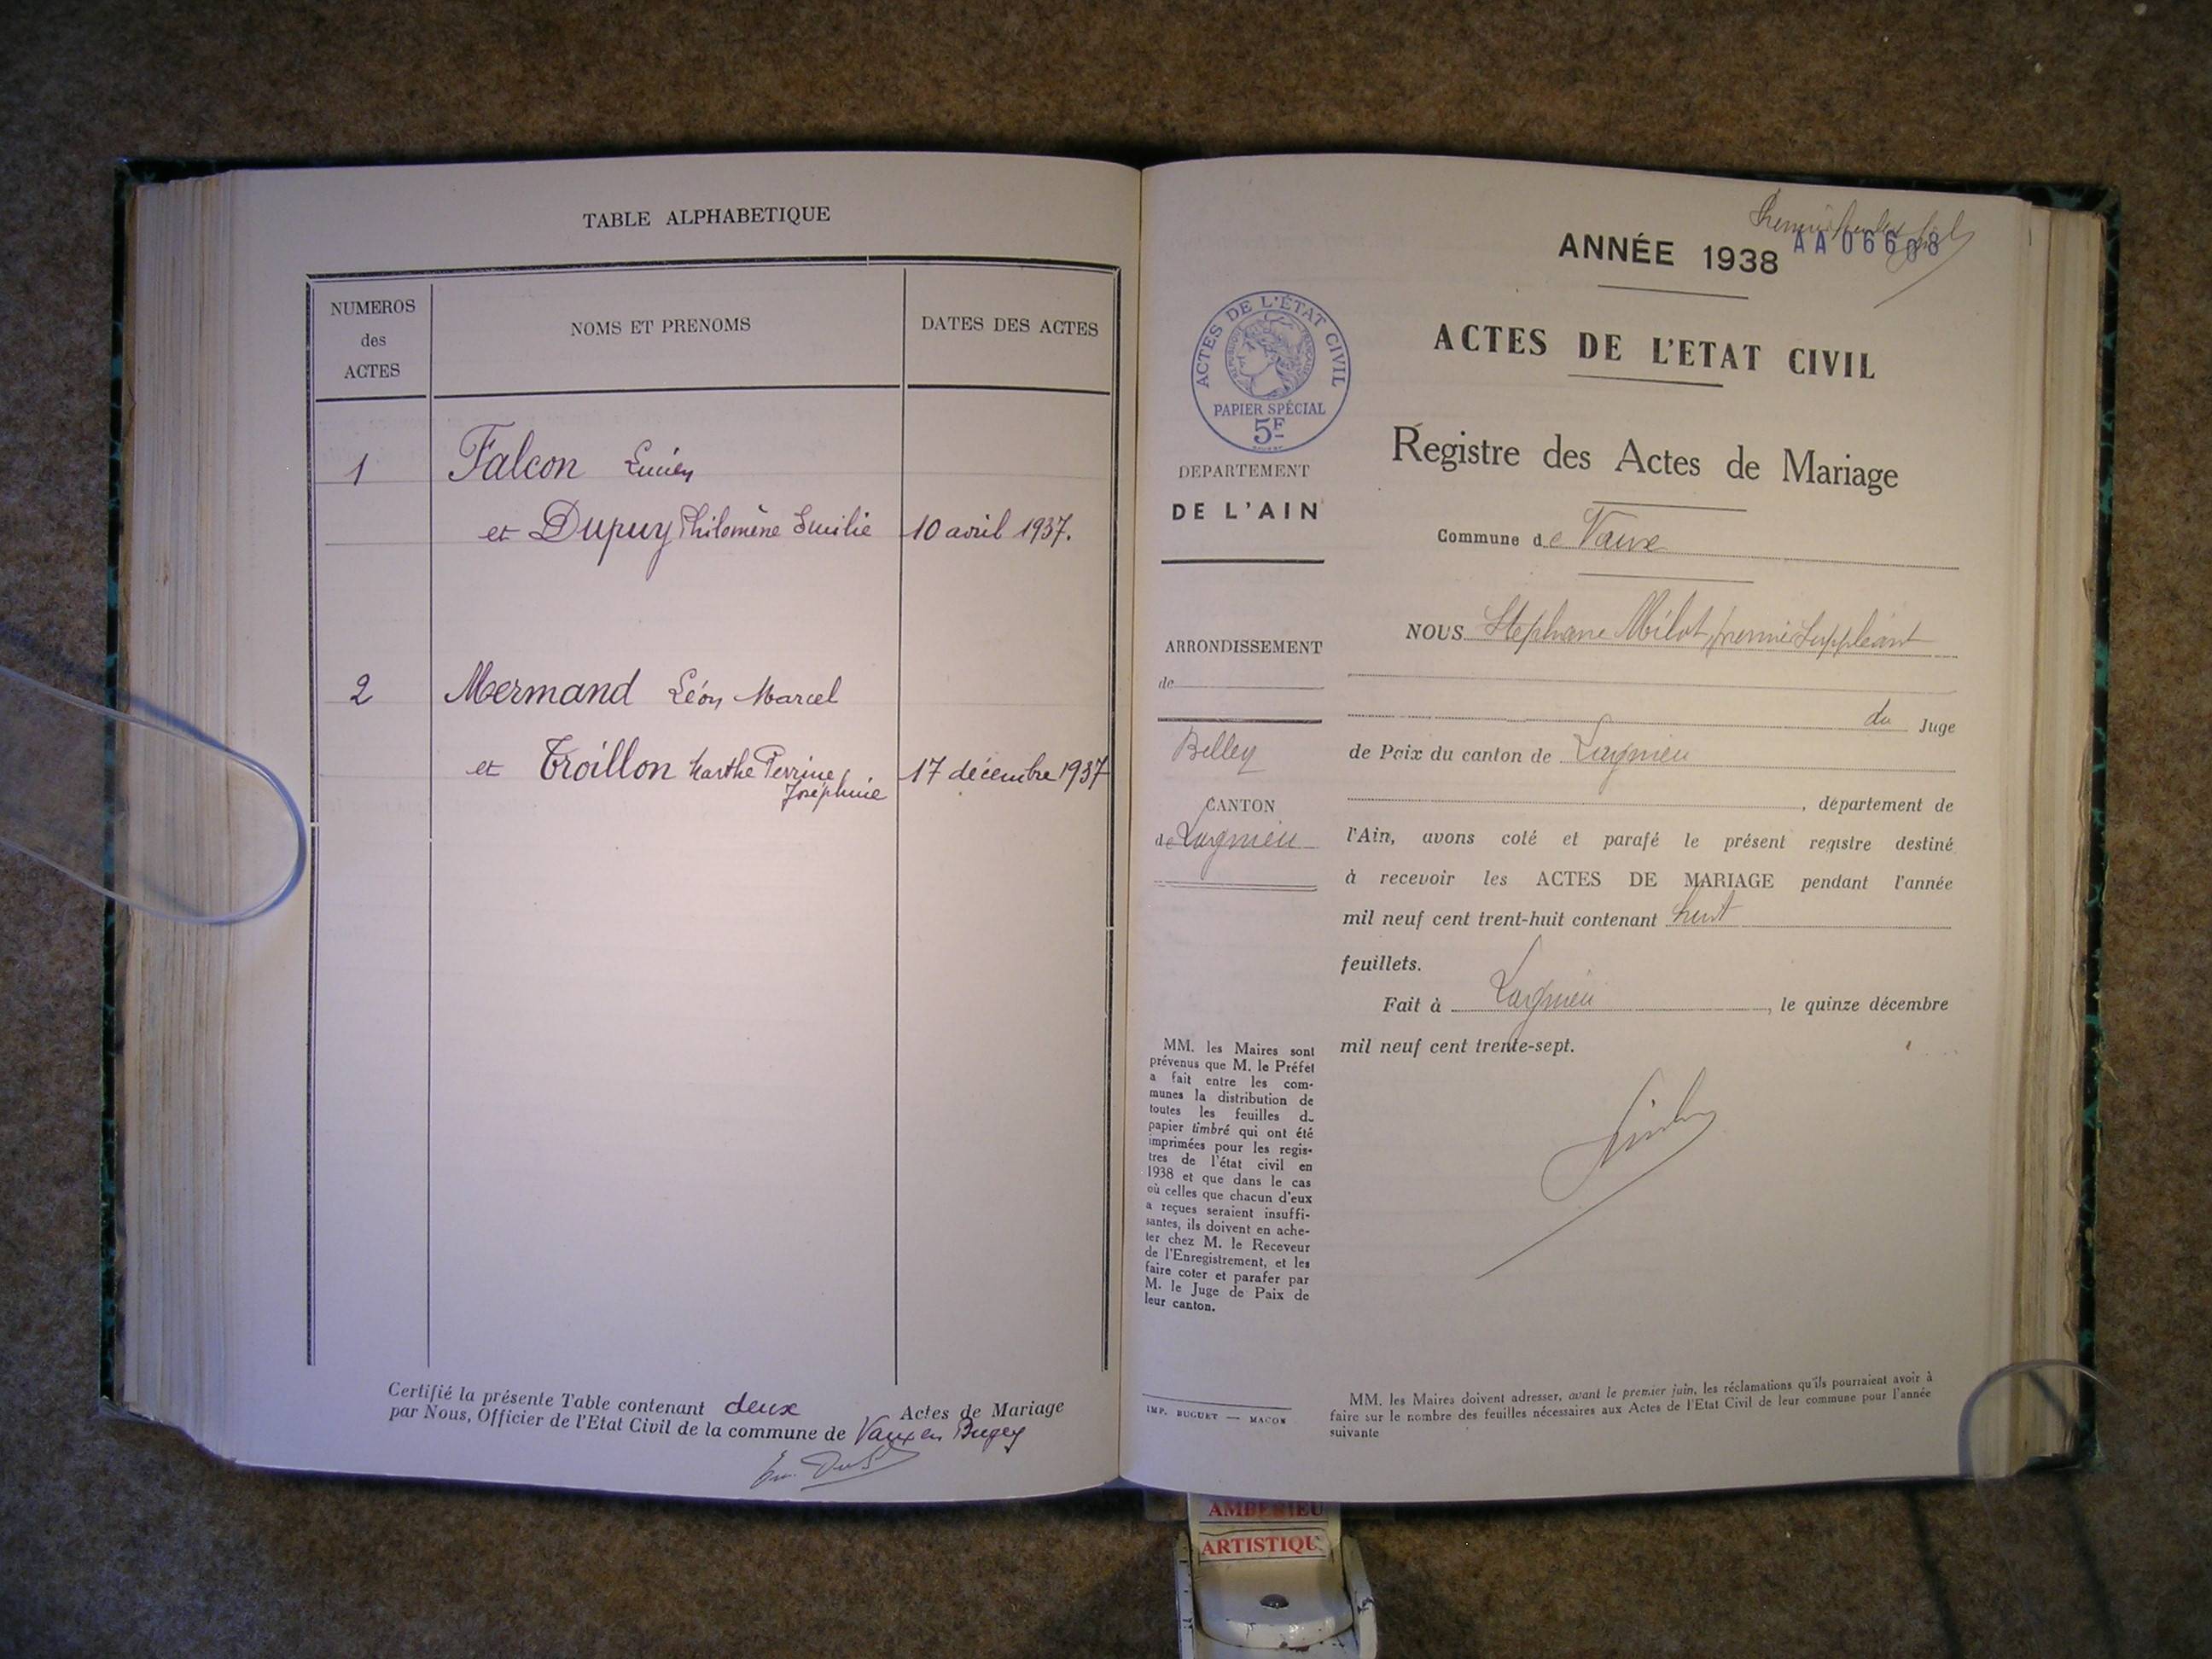 TABLE ALPHABETIQUE
NUMEROS
des
ACTES
NOMS ET PRENOMS
DATES DES ACTES
1
Falcon Lucien
et Dupuy Philomène Emilie
10 avril 1937.
2
Mermand Léon Marcel
et Troillon Marthe Perrine
Joséphine
17 décembre 1937
Certifié la présente Table contenant deux Actes de Mariage
par Nous, Officier de l'Etat Civil de la commune de Vaux en Bugey
ANNÉE 1938
ACTES DE L'ÉTAT CIVIL
RÉPUBLIQUE FRANÇAISE
PAPIER SPÉCIAL
5F
ACTES DE L'ETAT CIVIL
Registre des Actes de Mariage
Commune de Vaux
DEPARTEMENT
DE L'AIN
ARRONDISSEMENT
de
Belley
CANTON
de Lagnieu
NOUS Stéphane Milot, premier Suppléant
du Juge
de Paix du canton de Lagnieu
, département de
l'Ain, avons coté et parafé le présent registre destiné
à recevoir les ACTES DE MARIAGE pendant l'année
mil neuf cent trent-huit contenant huit
feuillets.
Fait à Lagnieu, le quinze décembre
mil neuf cent trente-sept.
MM. les Maires sont
prévenus que M. le Préfet
a fait entre les com-
munes la distribution de
toutes les feuilles de
papier timbré qui ont été
imprimées pour les regis-
tres de l'état civil en
1938 et que dans le cas
où celles que chacun d'eux
a reçues seraient insuffi-
santes, ils doivent en ache-
ter chez M. le Receveur
de l'Enregistrement, et les
faire coter et parafer par
M. le Juge de Paix de
leur canton.
IMP. BUGUET — MACON
MM. les Maires doivent adresser, avant le premier juin, les réclamations qu'ils pourraient avoir à
faire sur le nombre des feuilles nécessaires aux Actes de l'Etat Civil de leur commune pour l'année
suivante
AMBERIEU
ARTISTIQU